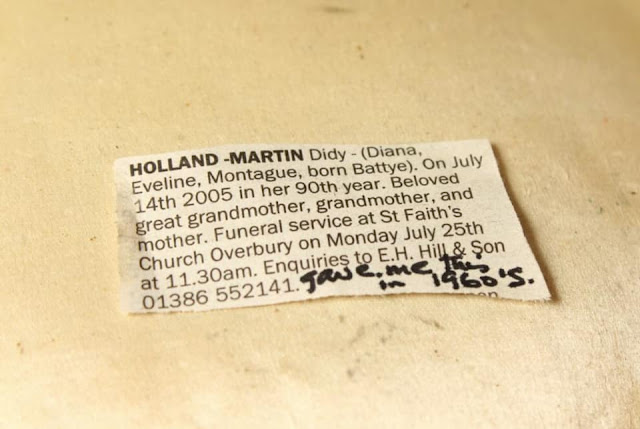 HOLLAND -MARTIN Didy - (Diana,
Eveline, Montague, born Battye). On July
14th 2005 in her 90th year. Beloved
great grandmother, grandmother, and
mother. Funeral service at St Faith's
Church Overbury on Monday July 25th
at 11.30am. Enquiries to E.H. Hill & Son
01386 552141. gave me this
in 1960's.